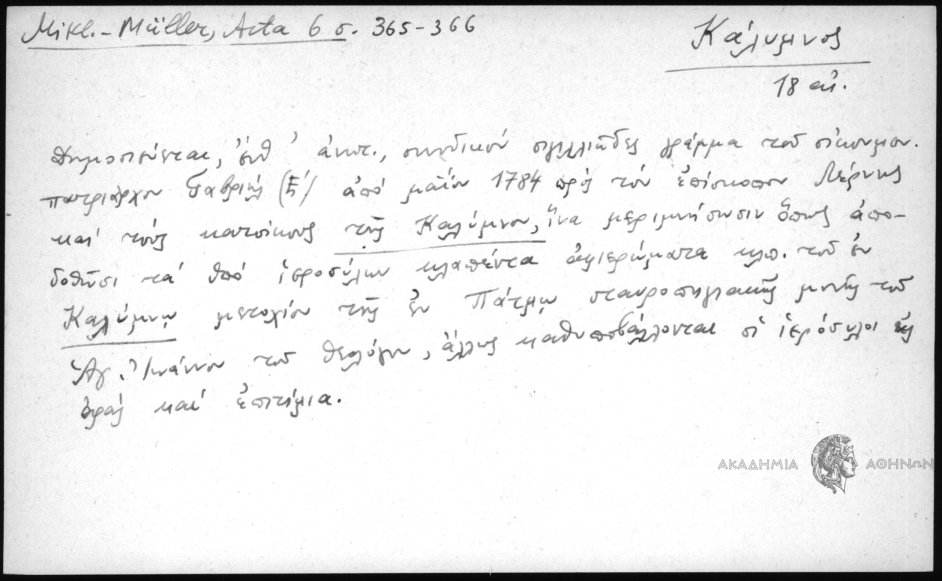 Mikl.-Müller, Acta 6 σ. 365-366
Κάλυμνος
18 αἰ.
Δημοσιεύεται, ἔνθ' ἀνωτ., συνοδικόν σιγιλλιῶδες γράμμα τοῦ οἰκουμεν.
πατριάρχου Γαβριήλ ἀπό μαΐου 1784 πρός τόν ἐπίσκοπον Λέρνης
καί τούς κατοίκους τῆς Καλύμνου, ἵνα μεριμνήσωσιν ὅπως ἀπο-
δοθῶσι τά ὑπό ἱεροσύλων κλαπέντα ἀφιερώματα κλπ. τοῦ ἐν
Καλύμνῳ μετοχίου τῆς ἐν Πάτμῳ σταυροπηγιακῆς μονῆς τοῦ
Ἁγ. Ἰωάννου τοῦ Θεολόγου, ἄλλως καθυποβάλλονται οἱ ἱερόσυλοι εἰς
ἀράς καί ἐπιτίμια.
ΑΚΑΔΗΜΙΑ ΑΘΗΝΩΝ